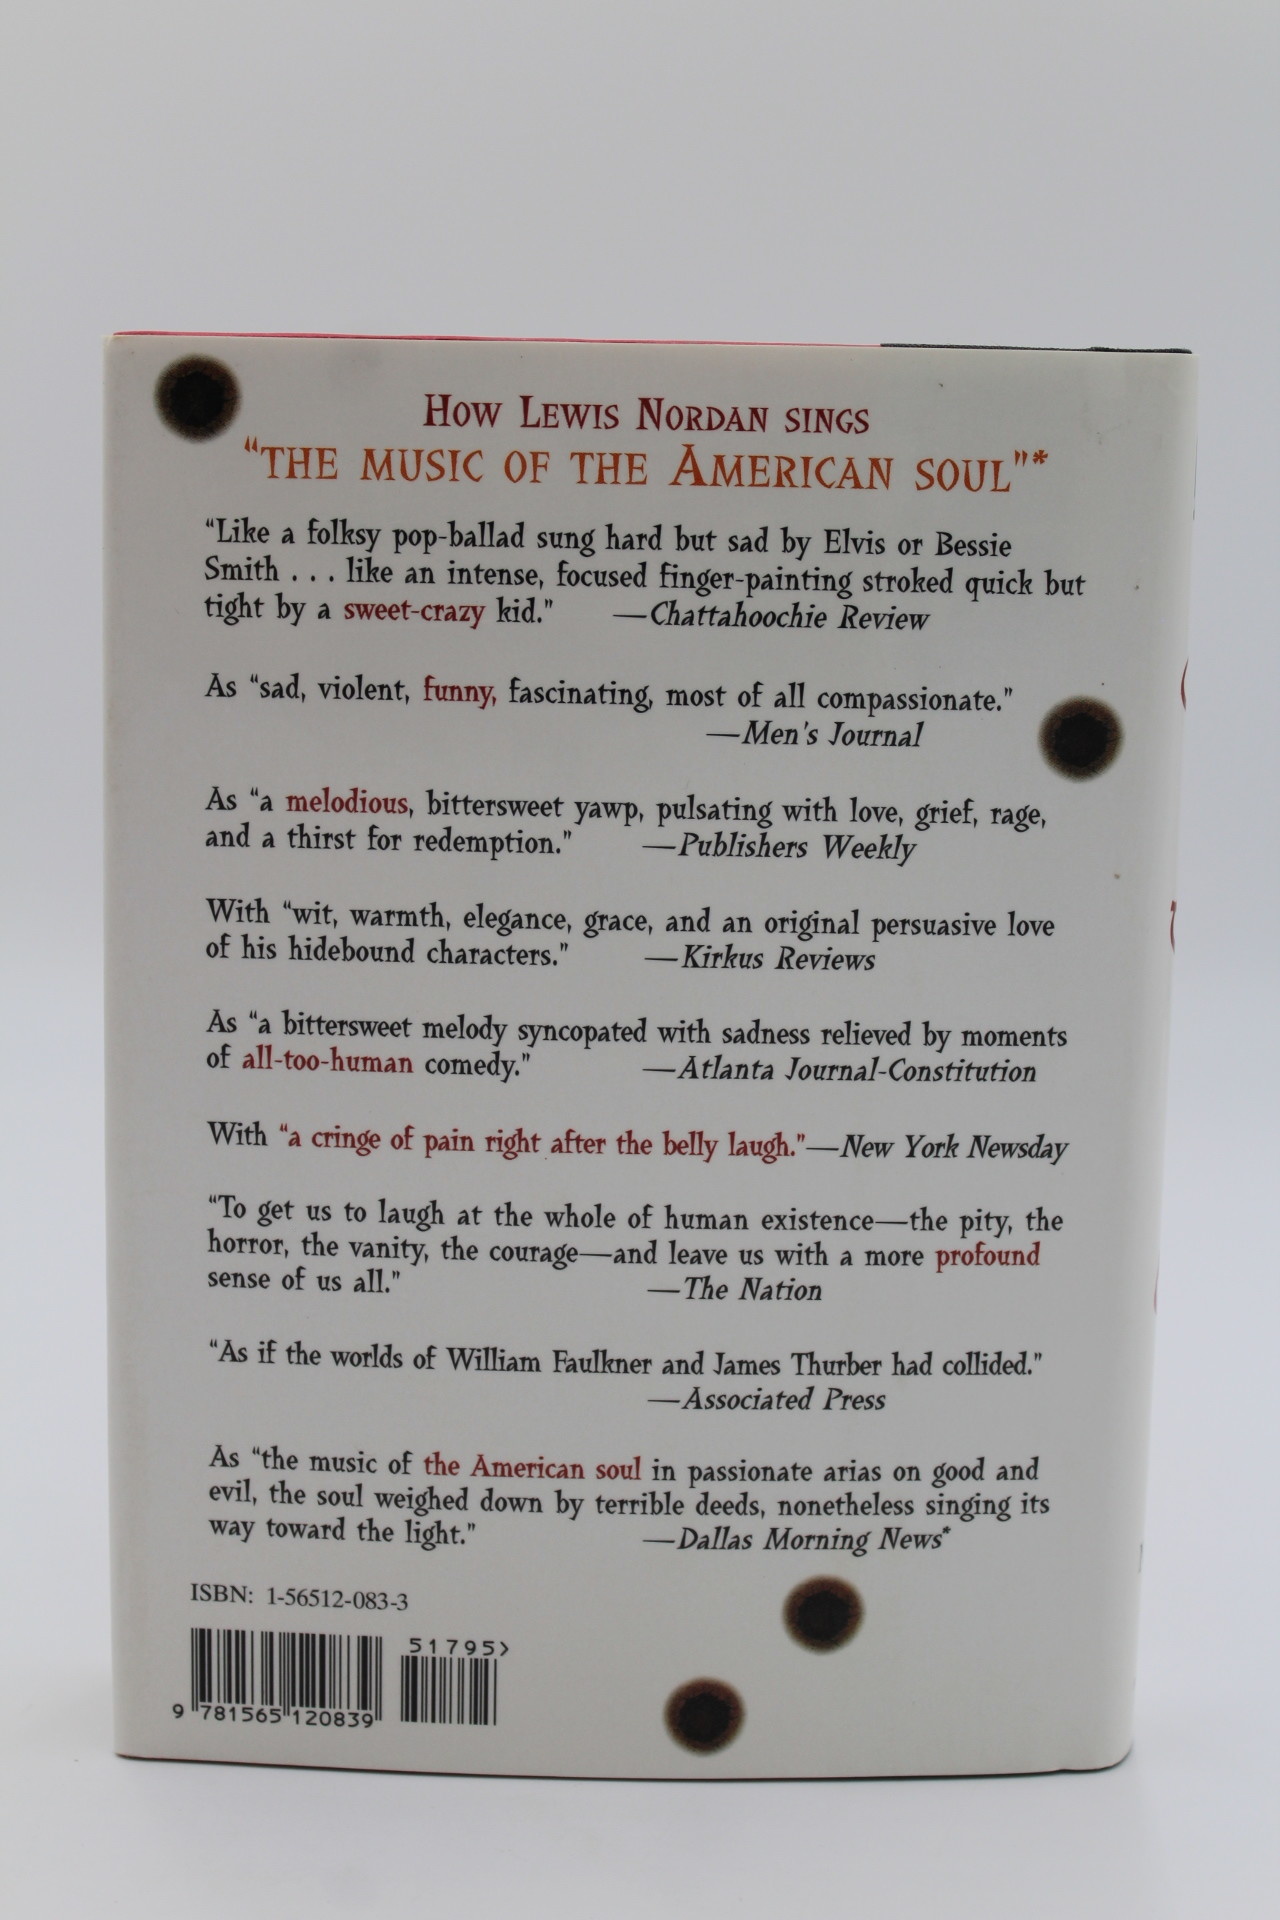 How Lewis Nordan sings
“the music of the American soul”*
“Like a folksy pop-ballad sung hard but sad by Elvis or Bessie
Smith . . . like an intense, focused finger-painting stroked quick but
tight by a sweet-crazy kid.” —Chattahoochie Review
As “sad, violent, funny, fascinating, most of all compassionate.”
—Men's Journal
As “a melodious, bittersweet yawp, pulsating with love, grief, rage,
and a thirst for redemption.” —Publishers Weekly
With “wit, warmth, elegance, grace, and an original persuasive love
of his hidebound characters.” —Kirkus Reviews
As “a bittersweet melody syncopated with sadness relieved by moments
of all-too-human comedy.” —Atlanta Journal-Constitution
With “a cringe of pain right after the belly laugh.”—New York Newsday
“To get us to laugh at the whole of human existence—the pity, the
horror, the vanity, the courage—and leave us with a more profound
sense of us all.” —The Nation
“As if the worlds of William Faulkner and James Thurber had collided.”
—Associated Press
As “the music of the American soul in passionate arias on good and
evil, the soul weighed down by terrible deeds, nonetheless singing its
way toward the light.” —Dallas Morning News*
ISBN: 1-56512-083-3
51795>
9 781565 120839